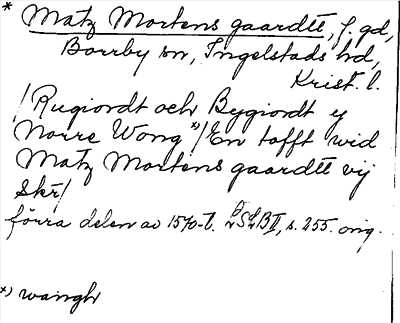 * Matz Mortens gaardtt, f. gd,
Borrby sn, Ingelstads hd,
Krist. l.
/Rugiordt och Bygiordt y
Norre Wong *)/En tofft wid
Matz Mortens gaardtt vij
Skr/
förra delen av 1570-t. LSLB II, s. 255. orig.
*) wangh